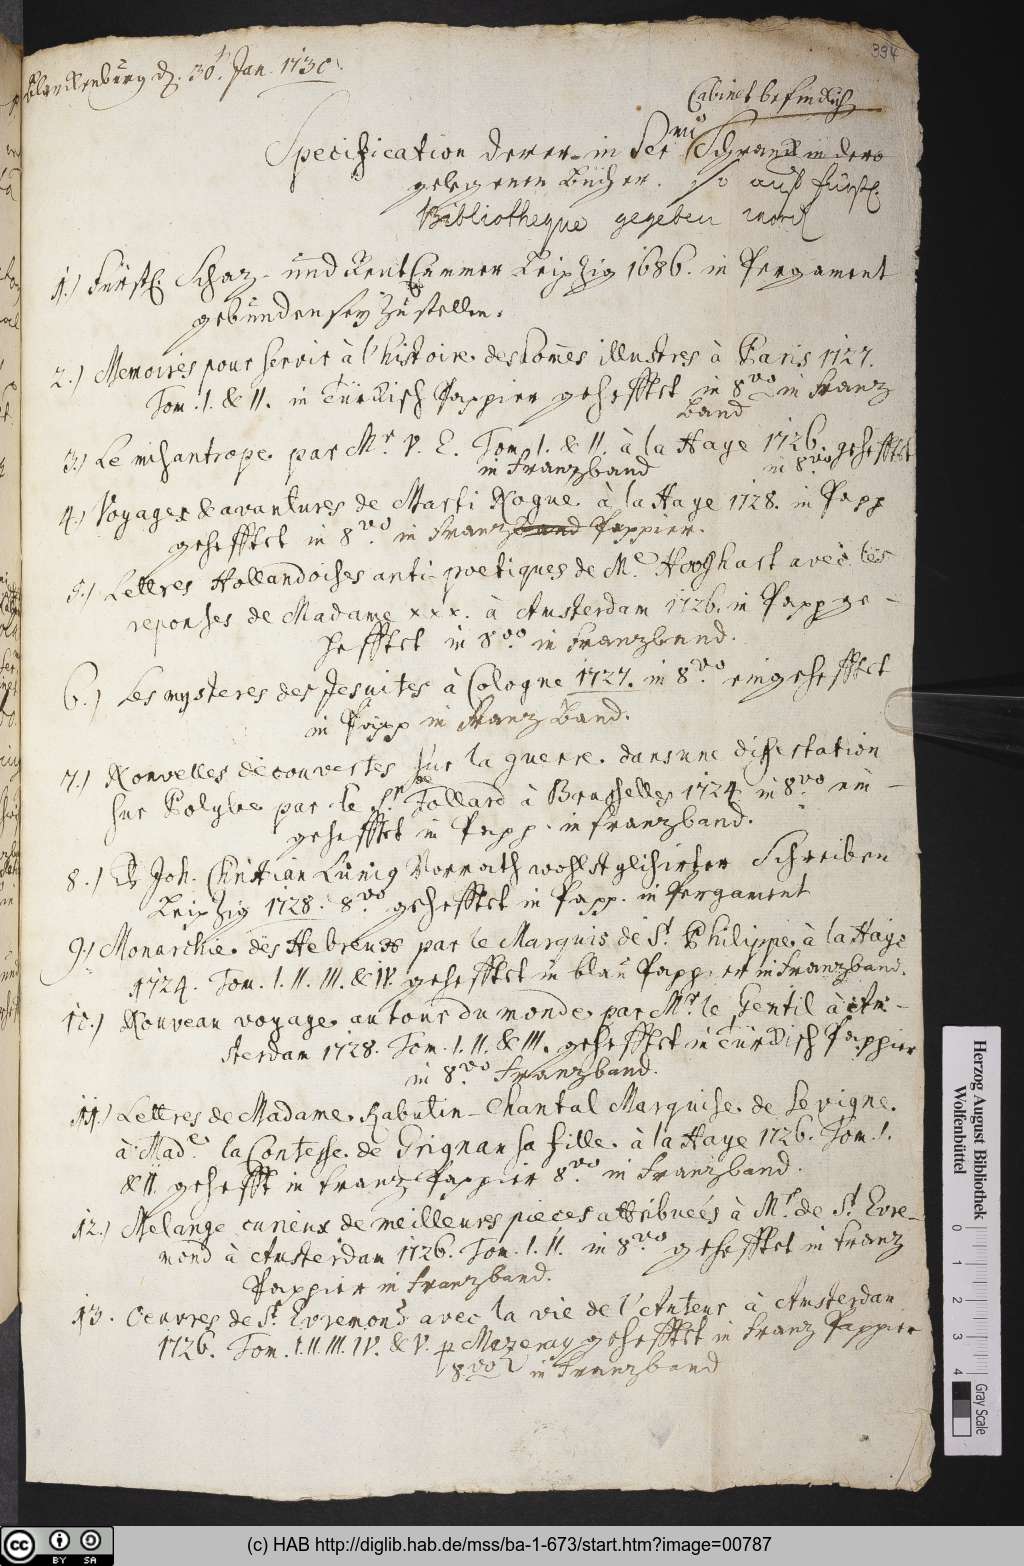 334
Blanckenburg d. 30t Jan. 1730.
Cabinet befindlich
Specification derer in Ser.mi Schranck in dero
gelegenen Bücher. so auß fürstl.
Bibliotheque gegeben word
1.) Fürstl. Schaz- und Rent Cammer Leipzig 1686. in Pergament
gebunden
2.) Memoires pour servir à l'histoire des homes illustres à Paris 1727.
Tom. I. & II. in Türckisch Pappier gehefftet in 8.vo in Franz
Band
3.) Le misantrope par Mr. V. E. Tom. I. & II. à la Haye 1726. gehefftet
in Franzband in 8.vo
4.) Voyages & avantures de Masti Rogue à la Haye 1728. in Papp
gehefftet in 8.vo in Franz band Pappier.
5.) Lettres Hollandoises anti-poetiques de M. Hooghart avec les
reponses de Madame xxx. à Amsterdam 1726. in Papp ge-
hefftet in 8.vo in Franzband.
6.) Les mysteres des Jesuites à Cologne 1727. in 8.vo eingehefftet
in Papp in Franz Band.
7.) Nouvelles découvertes sur la guerre dans une dissertation
sur Polybe par le Sr. de Follard à Brusselles 1724 in 8.vo ein-
gehefftet in Papp. in Franzband.
8.) Joh. Christian Lünig Vorrath wohl stylisirter Schreiben
Leipzig 1728. 8.vo gehefftet in Papp. in Pergament
9.) Monarchie des Hebreux par le Marquis de St. Philippe à la Haye
1724. Tom. I. II. III. & IV. gehefftet in blau Papp. er in Franzband.
10.) Nouveau voyage autour du monde par Mr. le Gentil à Am-
sterdam 1728. Tom. I. II. & III. gehefftet in Türckisch Pappier
in 8.vo Franzband.
11.) Lettres de Madame Rabutin-Chantal Marquise de Sevigne
à Made. la Contesse de Grignan sa fille à la Haye 1726. Tom. I.
& II. gehefft in Franz Pappier 8.vo in Franzband.
12.) Melange curieux de meilleures pieces attribueés à Mr. de St. Evre-
mond à Amsterdam 1726. Tom. I. II. in 8.vo gehefftet in Franz
Pappier in Franzband.
13. Oeuvres de St. Evremond avec la vie de l'Auteur à Amsterdam
1726. Tom. I. II. III. IV. & V. p Mazeray gehefftet in Franz Pappier
8.vo in Franzband
Herzog August Bibliothek
Wolfenbüttel
0 1 2 3 4
Gray Scale
CC BY SA
(c) HAB http://diglib.hab.de/mss/ba-1-673/start.htm?image=00787